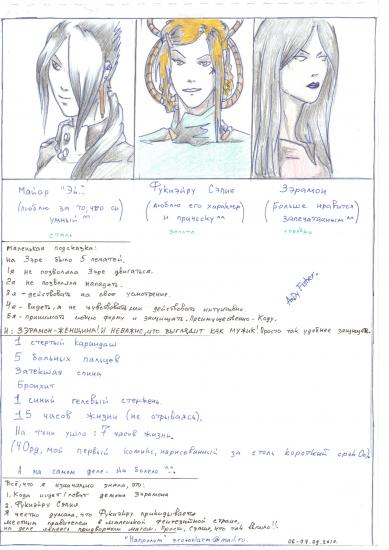 Майор "Эй."
(люблю за то, что он
умный ^^
сталь
Фукиэйру Сэпие
(люблю его характер
и прическу ^^
золото
Зэрамон
(Больше нравится
запечатанным ^^
серебро
Маленькая подсказка:
на Зэре было 5 печатей.
1я не позволяла Зэре двигаться.
2я не позволяла нападать.
3я - действовать на свое усмотрение.
4я - видеть, а не чувствовать действовать интуитивно.
5я - принимать форму и защищать. Преимущественно - Коду.
И: ЗЭРАМОН-ЖЕНЩИНА! И НЕВАЖНО, ЧТО ВЫГЛЯДИТ КАК МУЖИК! Просто так удобнее защищать.
1 стертый карандаш
5 больных пальцев
Затекшая спина
Бронхит
1 синий гелевый стержень.
15 часов жизни (не отрываясь).
На тени ушло: 7 часов жизни.
мой первый комикс, нарисованный за столь короткий срок
А на самом деле - не болею ^^.
Всё, что я изначально знала, это:
1. Кода ищет/ловит демона Зэрамона
2. Фукиэйру Сэпие
Я честно думала, что Фукиэйру прикидывается
местным правителем в маленькой фентезийной стране,
на деле являясь придворным магом.
06-07.09.2010.